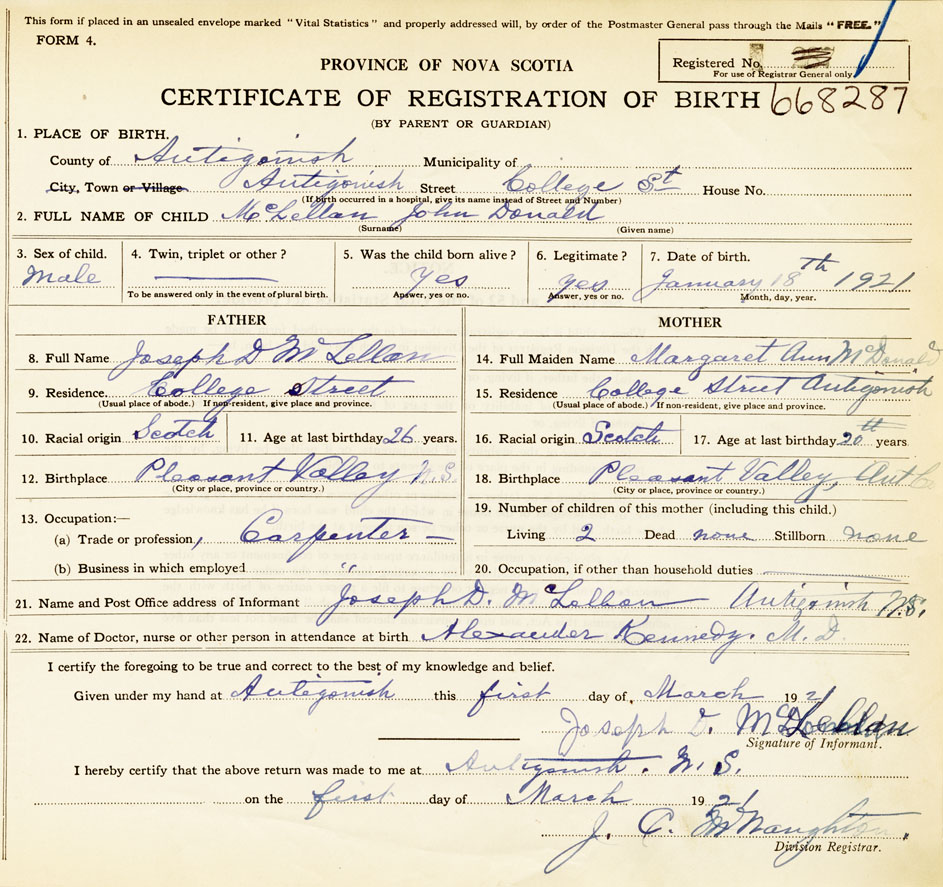 This form if placed in an unsealed envelope marked "Vital Statistics" and properly addressed will, by order of the Postmaster General pass through the Mails "FREE."
FORM 4.
Registered No.
For use of Registrar General only
PROVINCE OF NOVA SCOTIA
CERTIFICATE OF REGISTRATION OF BIRTH 668287
(BY PARENT OR GUARDIAN)
1. PLACE OF BIRTH.
County of Antigonish Municipality of
City, Town or Village Antigonish Street College St House No.
(If birth occurred in a hospital, give its name instead of Street and Number)
2. FULL NAME OF CHILD McLellan John Donald
(Surname) (Given name)
3. Sex of child. 4. Twin, triplet or other? 5. Was the child born alive? 6. Legitimate? 7. Date of birth.
Male Yes yes January 18th 1921
To be answered only in the event of plural birth. Answer, yes or no. Answer, yes or no. Month, day, year.
FATHER MOTHER
8. Full Name Joseph D McLellan 14. Full Maiden Name Margaret Ann McDonald
9. Residence. College Street 15. Residence College Street Antigonish
(Usual place of abode.) If non-resident, give place and province. (Usual place of abode.) If non-resident, give place and province.
10. Racial origin Scotch 11. Age at last birthday 26 years. 16. Racial origin Scotch 17. Age at last birthday 20th years
12. Birthplace Pleasant Valley N.S. 18. Birthplace Pleasant Valley, Ant Co
(City or place, province or country.) (City or place, province or country.)
13. Occupation:— 19. Number of children of this mother (including this child.)
(a) Trade or profession, Carpenter — Living 2 Dead none Stillborn none
(b) Business in which employed " 20. Occupation, if other than household duties
21. Name and Post Office address of Informant Joseph D. McLellan Antigonish N.S.
22. Name of Doctor, nurse or other person in attendance at birth Alexander Kennedy. M.D.
I certify the foregoing to be true and correct to the best of my knowledge and belief.
Given under my hand at Antigonish this first day of March 1921
Joseph D. McLellan
Signature of Informant.
I hereby certify that the above return was made to me at Antigonish. N.S.
on the first day of March 1921
J. C. McNaughton
Division Registrar.